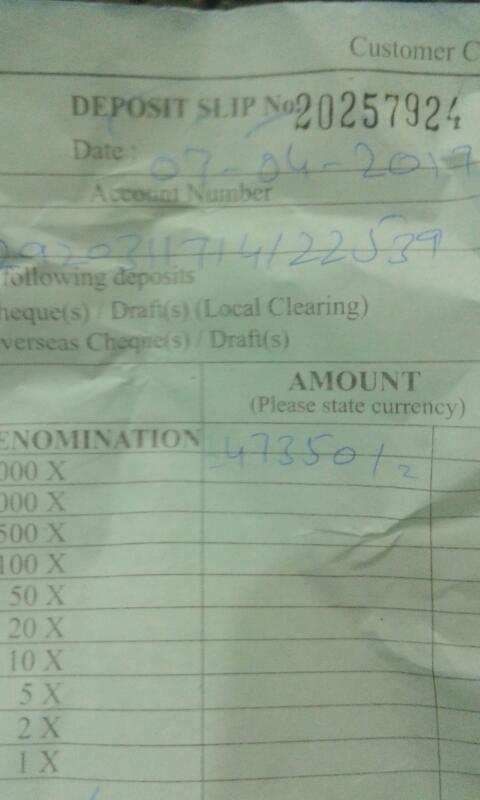 Customer C
DEPOSIT SLIP No. 20257924
Date : 07-04-2017
Account Number
2920311714122539
following deposits
heque(s) / Draft(s) (Local Clearing)
verseas Cheque(s) / Draft(s)
AMOUNT
(Please state currency)
ENOMINATION
=47350/2
000 X
000 X
500 X
100 X
50 X
20 X
10 X
5 X
2 X
1 X